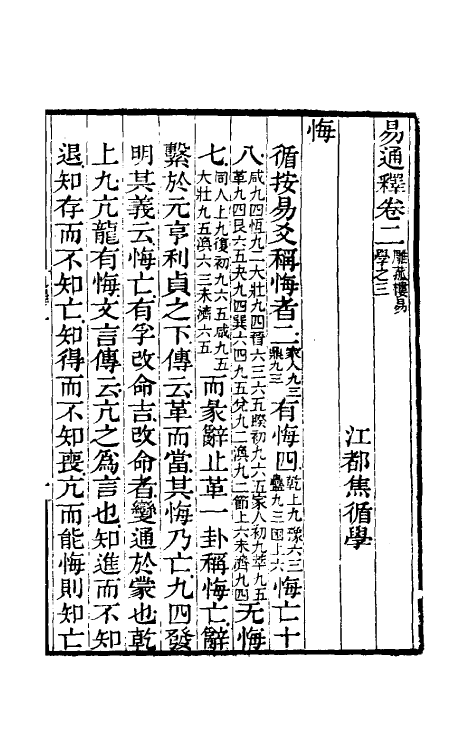 易通釋卷二 雕菰樓易學之三
江都焦循學
悔
循按易爻稱悔者二家人九三鼎九三有悔四乾上九豫六三蠱九三困上六悔亡十
八咸九四恆九二大壯九四晉六三六五睽初九六五家人初九萃九五革九四艮六五夬九四巽六四九五兌九二渙九二節上六未濟九四无悔
七同人上九復初九六五咸九五大壯九五渙六三未濟六五而彖辭止革一卦稱悔亡辭
繫於元亨利貞之下傳云革而當其悔乃亡九四發
明其義云悔亡有孚改命吉改命者變通於蒙也乾
上九亢龍有悔文言傳云亢之爲言也知進而不知
退知存而不知亡知得而不知喪亢而能悔則知亡